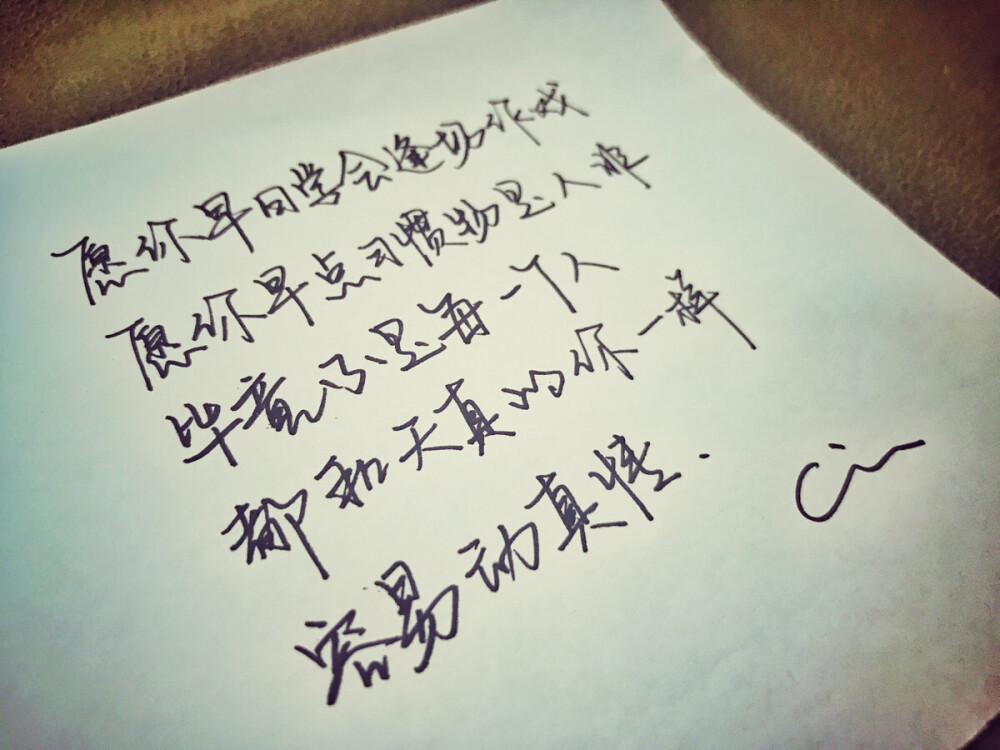 愿你早日学会逢场作戏
愿你早点习惯物是人非
毕竟不是每一个人
都和天真的你一样
容易动真情.